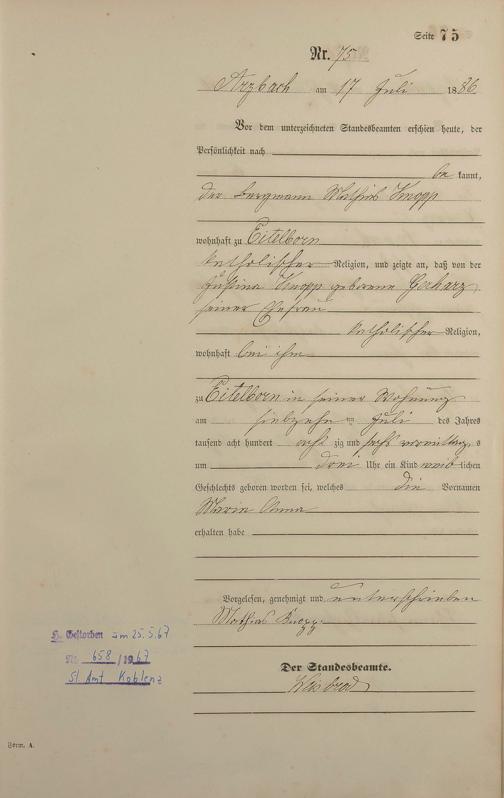 Seite 75
Nr. 75
Arzbach am 17 Juli 1886
Vor dem unterzeichneten Standesbeamten erschien heute, der
Persönlichkeit nach
be kannt,
der Bergmann Mathias Knopp
wohnhaft zu Eitelborn
katholischer Religion, und zeigte an, daß von der
Justina Knopp geborene Gerharz
seiner Ehefrau
katholischer Religion,
wohnhaft bei ihm
zu Eitelborn in seiner Wohnung
am siebzehn ten Juli des Jahres
tausend acht hundert acht zig und sechs vormittag s
um drei Uhr ein Kind weib lichen
Geschlechts geboren worden sei, welches die Vornamen
Maria Anna
erhalten habe
Vorgelesen, genehmigt und unterschrieben
Mathias Knopp
Der Standesbeamte.
Weisbrod
Gestorben am 25.5.67
Nr. 658/1967
St. Amt Koblenz
Form. A.